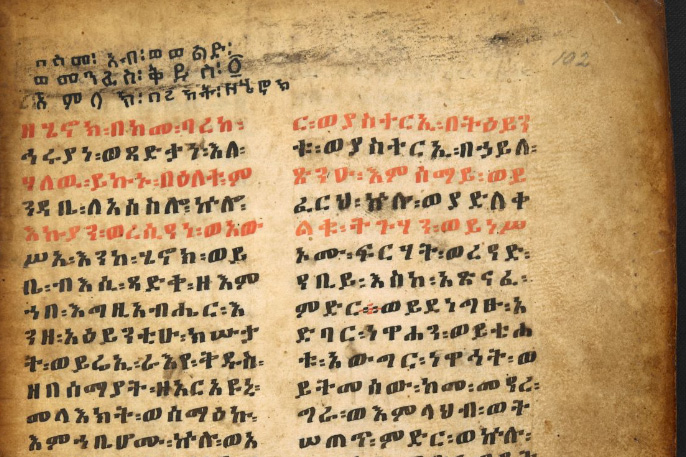 በስመ፡ አብ፡ወወልድ፡
ወመንፈስ፡ቅዱስ፡፩
አምላክ፡በረከት፡ዘሄኖክ
ዘሄኖክ፡በከመ፡ባረከ፡
ኅሩያነ፡ወጻድቃን፡እለ፡
ሃለዉ፡ይኩኑ፡በዕለት፡ም
ንዳቤ፡ለአሰስሎ፡ኵሎ፡
እኩያን፡ወረሲዓነ፡ወአው
ሥአ፡እንከ፡ሄኖክ፡ወይ
ቤ፡ብእሲ፡ጻድቅ፡ዘእም
ኀበ፡እግዚአብሔር፡እ
ንዘ፡አዕይንቲሁ፡ክሡታ
ት፡ወይሬኢ፡ራእየ፡ቅዱስ፡
ዘበሰማያት፡ዘአርአዩኒ፡
መላእክት፡ወሰማዕኩ፡
እምኀቤሆሙ፡ኵሎ፡ወአ
102
ር፡ወያስተርኢ፡በትዕይን
ቱ፡ወያስተርኢ፡በኃይለ፡
ጽንዑ፡እምሰማይ፡ወይ
ፈርህ፡ኵሉ፡ወያድለቀ
ልቁ፡ትጉሃን፡ወይነሥ
አሙ፡ፍርሃት፡ወረዓድ፡
ዓቢይ፡እስከ፡አጽናፈ፡
ምድር፡ወይደነግፁ፡አ
ድባር፡ነዋኀን፡ወይቴሐ
ቱ፡አውግር፡ነዋኅት፡ወ
ይትመሰው፡ከመ፡መዓረ፡
ግራ፡ወእምላህብ፡ወት
ሠጠም፡ምድር፡ወኵሉ፡